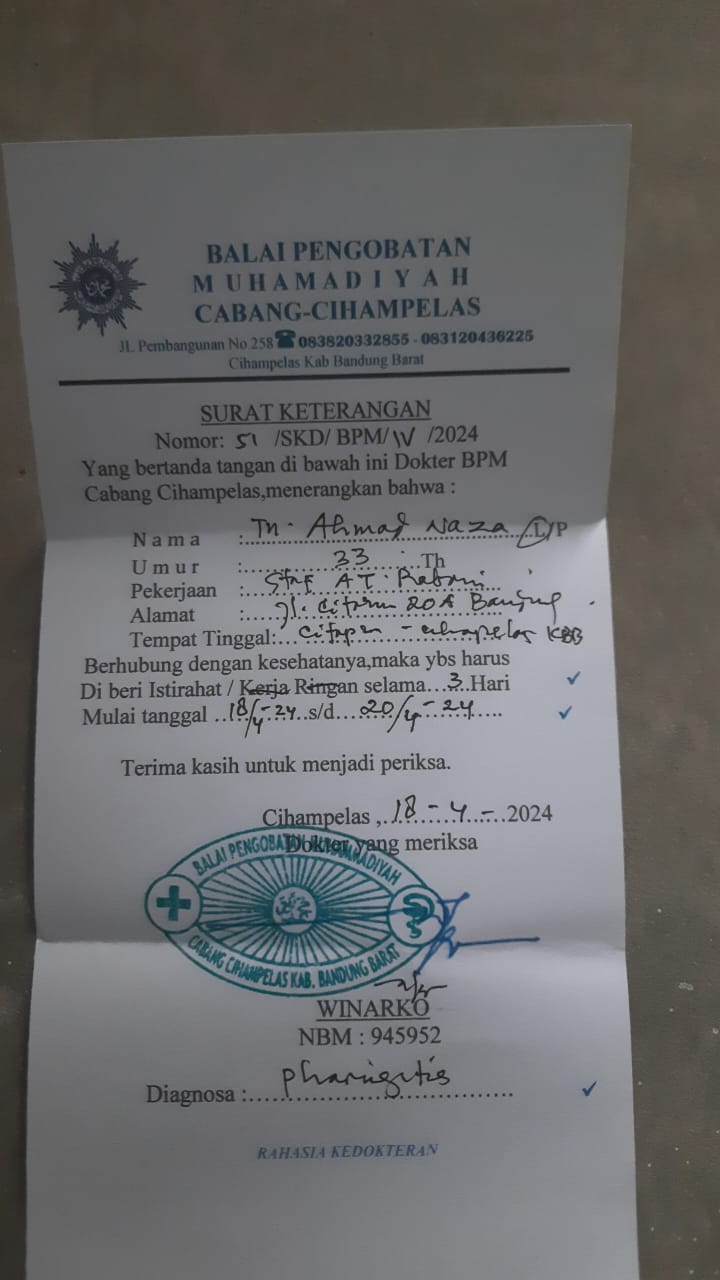 BALAI PENGOBATAN
MUHAMADIYAH
CABANG-CIHAMPELAS
JL. Pembangunan No 258 ☎ 083820332855 - 083120436225
Cihampelas Kab Bandung Barat
SURAT KETERANGAN
Nomor: 51 /SKD/ BPM/ IV /2024
Yang bertanda tangan di bawah ini Dokter BPM
Cabang Cihampelas,menerangkan bahwa :
Nama :Tn. Ahmad Naza L/P
Umur :33 Th
Pekerjaan :Staf
Alamat :Jl. Citarum 20A
Tempat Tinggal: - cihampelas KBB
Berhubung dengan kesehatanya,maka ybs harus
Di beri Istirahat / Kerja Ringan selama 3 Hari
Mulai tanggal 18/4-24 s/d 20/4-24
Terima kasih untuk menjadi periksa.
Cihampelas , 18 - 4 - 2024
Dokter yang meriksa
BALAI PENGOBATAN MUHAMMADIYAH
CABANG CIHAMPELAS KAB. BANDUNG BARAT
WINARKO
NBM : 945952
Diagnosa : Pharingitis
RAHASIA KEDOKTERAN